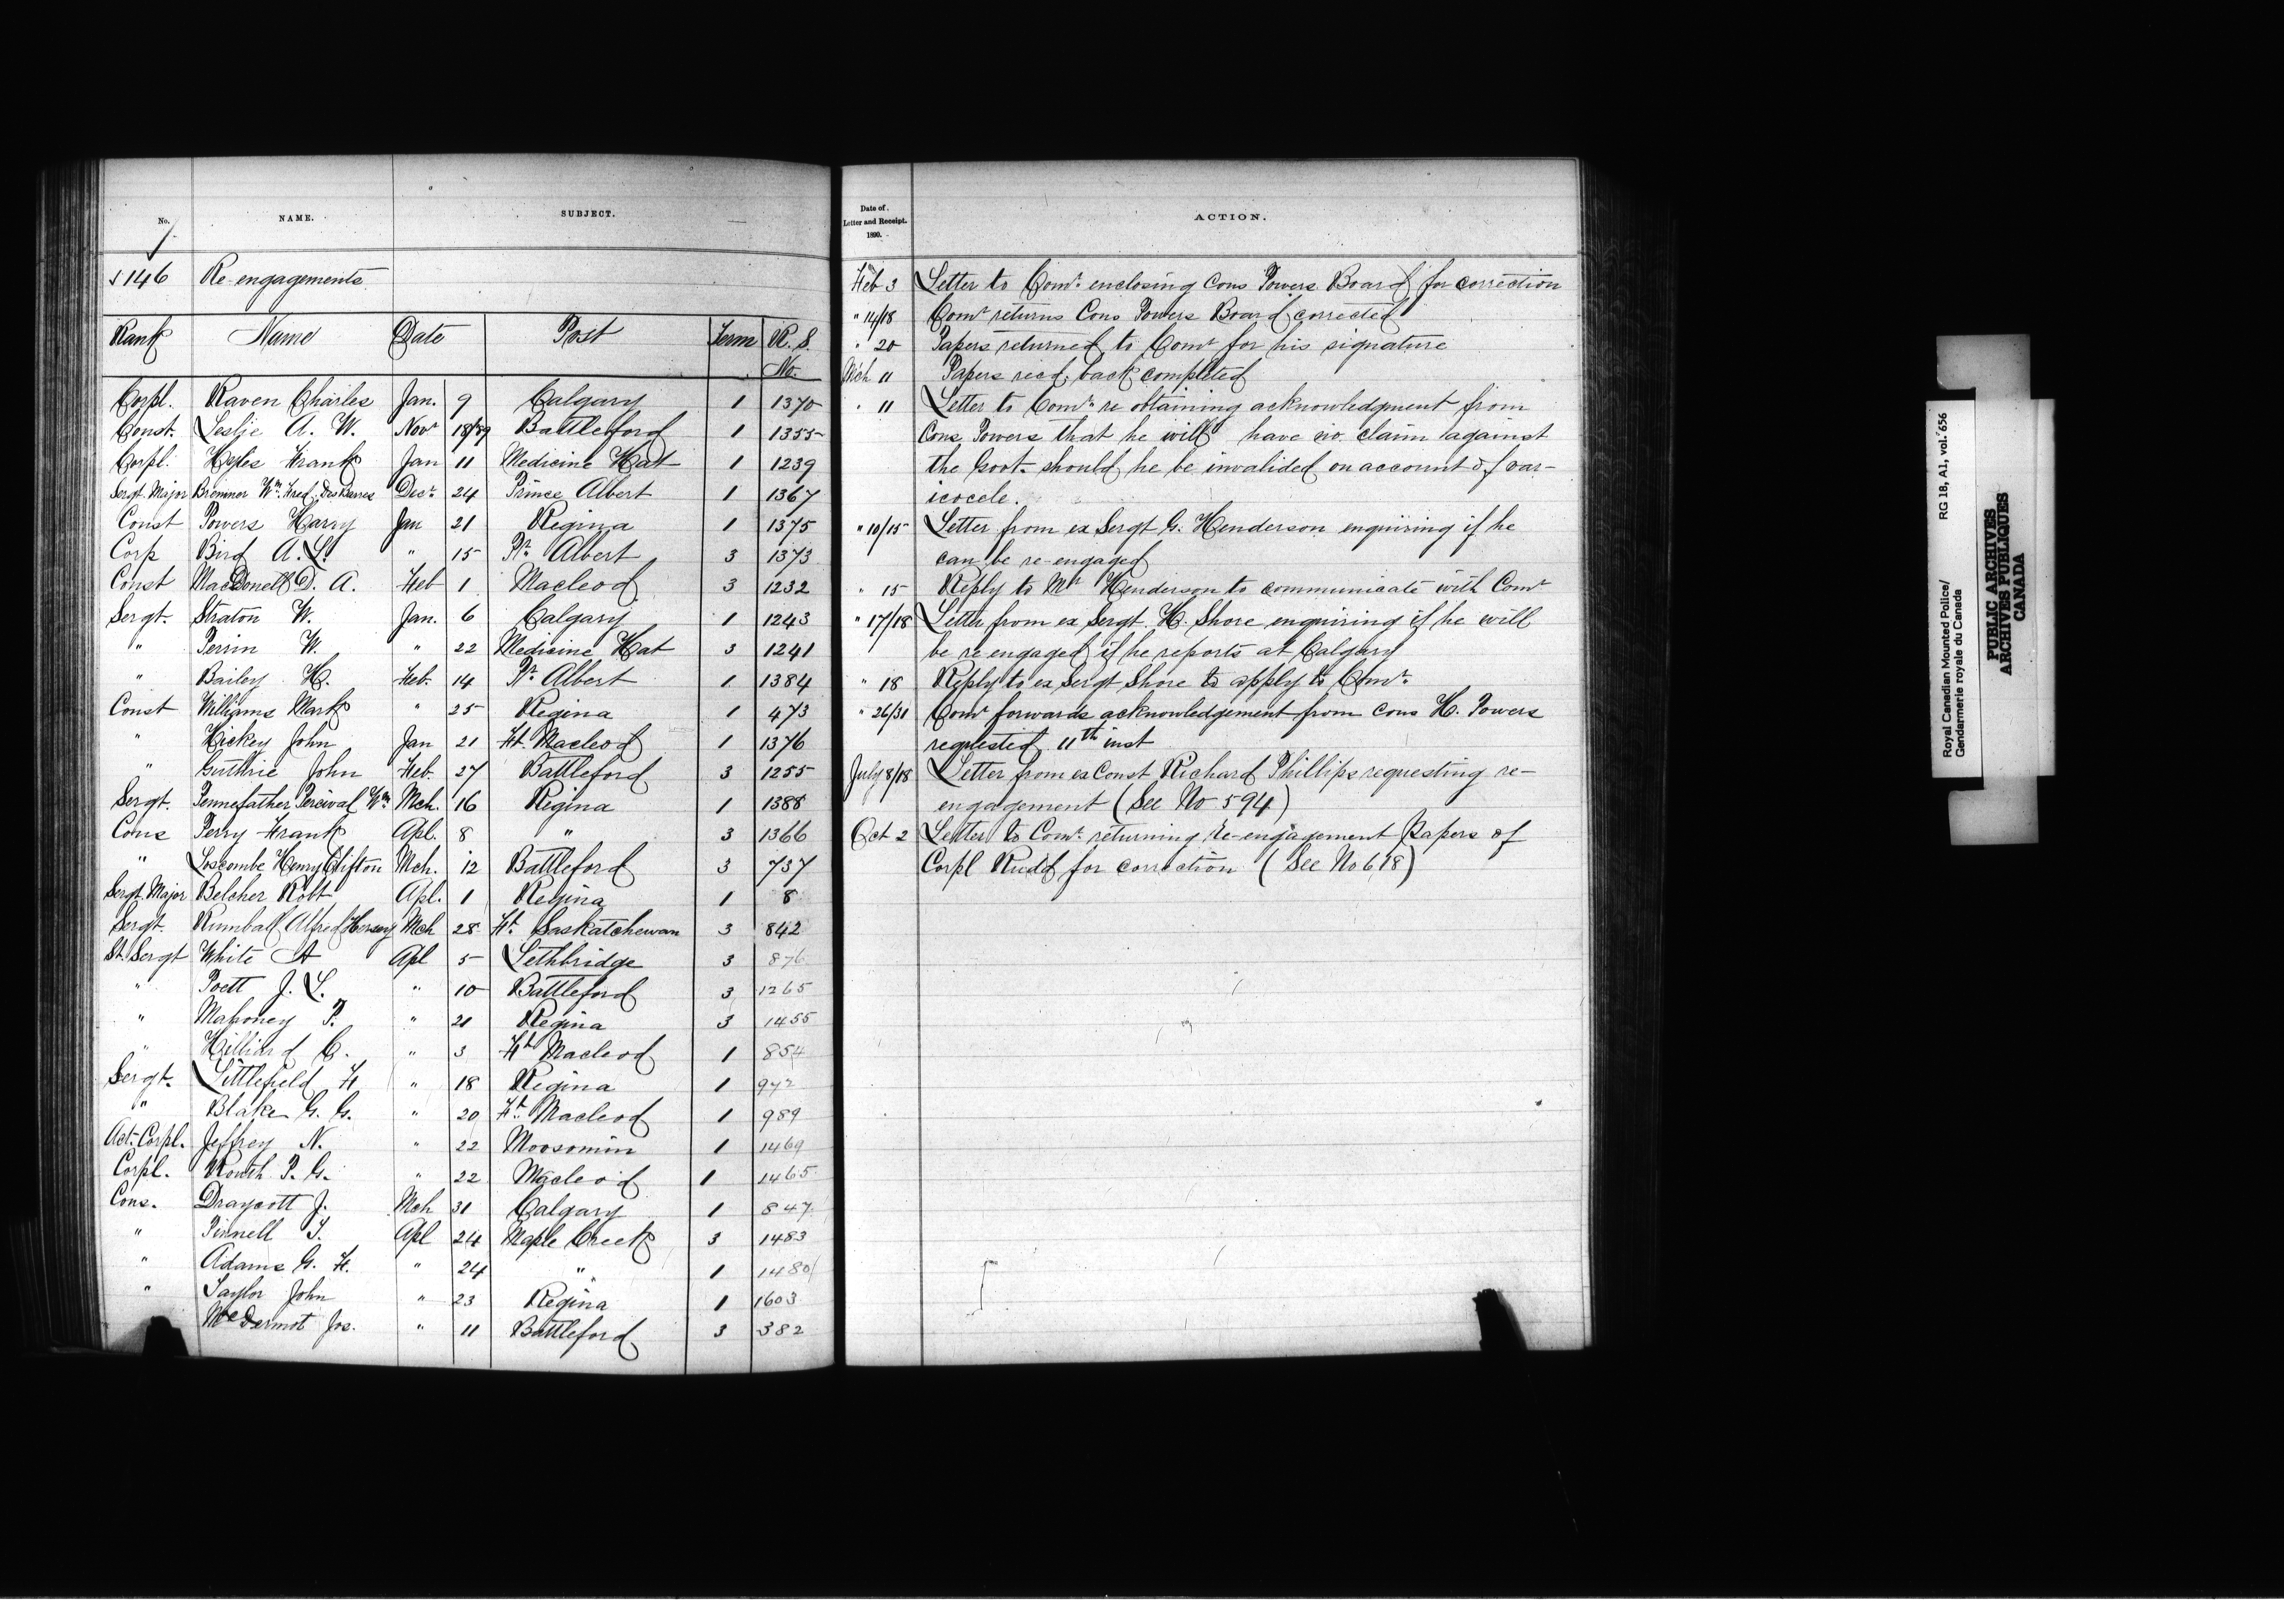 No. NAME. SUBJECT.
146 Re-engagements
Rank Name Date Post Term R. S. No.
Corpl. Raven Charles Jan. 9 Calgary 1 1370
Const. Leslie A. W. Novr 18/89 Battleford 1 1355
Corpl. Hyles Frank Jan 11 Medicine Hat 1 1239
Sergt. Major Bremner Wm. Fred. Decr. 24 Prince Albert 1 1367
Const Powers Harry Jan 21 Regina 1 1375
Corp Bird A. L. " 15 Pr. Albert 3 1373
Const MacDonell D. A. Feb 1 Macleod 3 1232
Sergt. Straton W. Jan. 6 Calgary 1 1243
" Perrin W. " 22 Medicine Hat 3 1241
" Bailey H. Feb. 14 Pr. Albert 1 1384
Const Williams Mark " 25 Regina 1 473
" Hickey John Jan 21 Ft. Macleod 1 1376
" Guthrie John Feb. 27 Battleford 3 1255
Sergt. Pennefather Percival Wm. Mch. 16 Regina 1 1388
Cons Perry Frank Apl. 8 " 3 1366
" Loscombe Henry Clifton Mch. 12 Battleford 3 737
Sergt. Major Belcher Robt Apl. 1 Regina 1 8
Sergt. Rumball Alfred Hersey Mch 28 Ft. Saskatchewan 3 842
St. Sergt White A Apl 5 Lethbridge 3 876
" Poett J. L. " 10 Battleford 3 1265
" Mahoney P. " 21 Regina 3 1455
" Hilliard C. " 3 Ft. Macleod 1 854
Sergt. Littlefield F " 18 Regina 1 942
" Blake G. G. " 20 Ft. Macleod 1 989
Act. Corpl. Jeffrey N. " 22 Moosomin 1 1469
Corpl. Routh P. G. " 22 Macleod 1 1465
Cons. Draycott J. Mch 31 Calgary 1 847
" Pinnell T. Apl 24 Maple Creek 3 1483
" Adams G. F. " 24 " 1 1480
" Taylor John " 23 Regina 1 1603
McDermot Jos. " 11 Battleford 3 382
Date of Letter and Receipt. 1890. ACTION.
Feb 3 Letter to Comr. enclosing Cons Powers Board for correction
" 14/18 Comr returns Cons Powers Board corrected
" 20 Papers returned to Comr for his signature
Mch 11 Papers recd. back completed
" 11 Letter to Comr. re obtaining acknowledgment from
Cons Powers that he will have no claim against
the Govt. should he be invalided on account of var-
icocele.
" 10/15 Letter from ex Sergt G. Henderson enquiring if he
can be re-engaged
" 15 Reply to Mr Henderson to communicate with Comr
" 17/18 Letter from ex Sergt. H. Shore enquiring if he will
be re engaged if he reports at Calgary
" 18 Reply to ex Sergt Shore to apply to Comr.
" 26/31 Comr forwards acknowledgement from Cons H. Powers
requested 11th inst
July 8/18 Letter from ex Const Richard Phillips requesting re-
engagement (See No 594)
Oct 2 Letter to Comr. returning re-engagement papers of
Corpl Rudd for correction (See No 618)
Royal Canadian Mounted Police/ RG 18, A1, vol. 656
Gendarmerie royale du Canada
PUBLIC ARCHIVES
ARCHIVES PUBLIQUES
CANADA